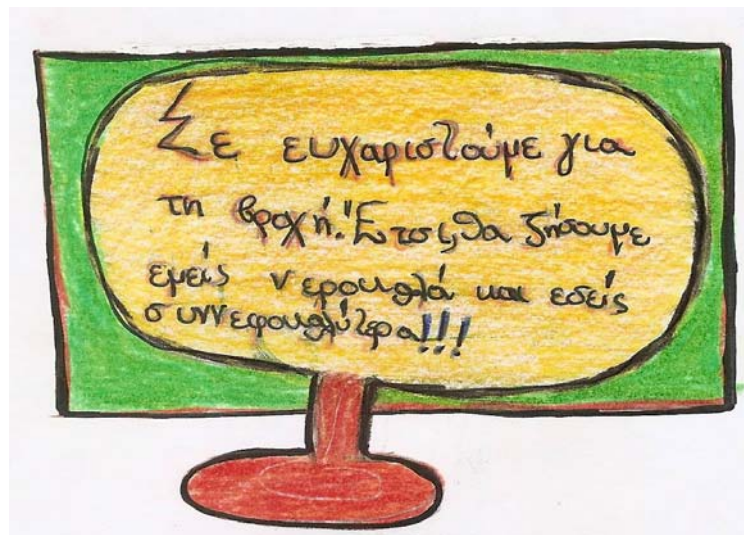 Σε ευχαριστούμε για
τη βροχή. Έτσι, θα ζήσουμε
εμείς νερουλά και εσείς
συννεφουλύτερα!!!